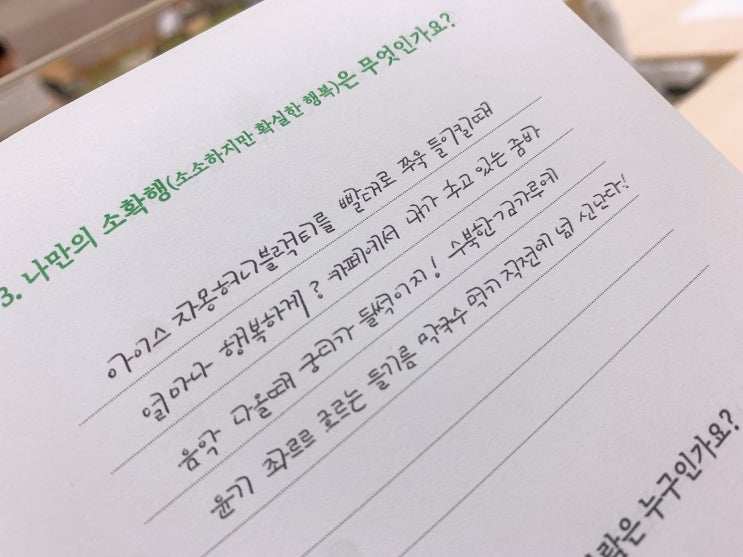 3. 나만의 소확행(소소하지만 확실한 행복)은 무엇인가요?
아이스 자몽허니블랙티를 빨대로 쭈욱 들이킬때
얼마나 행복하게? 카페에서 내가 추고 있는 줌바
음악 나올때 궁디가 들썩이지! 수북한 김가루에
윤기 좌르르 흐르는 들기름 막국수 먹기 직전에 넘 신난다!
람은 누구인가요?